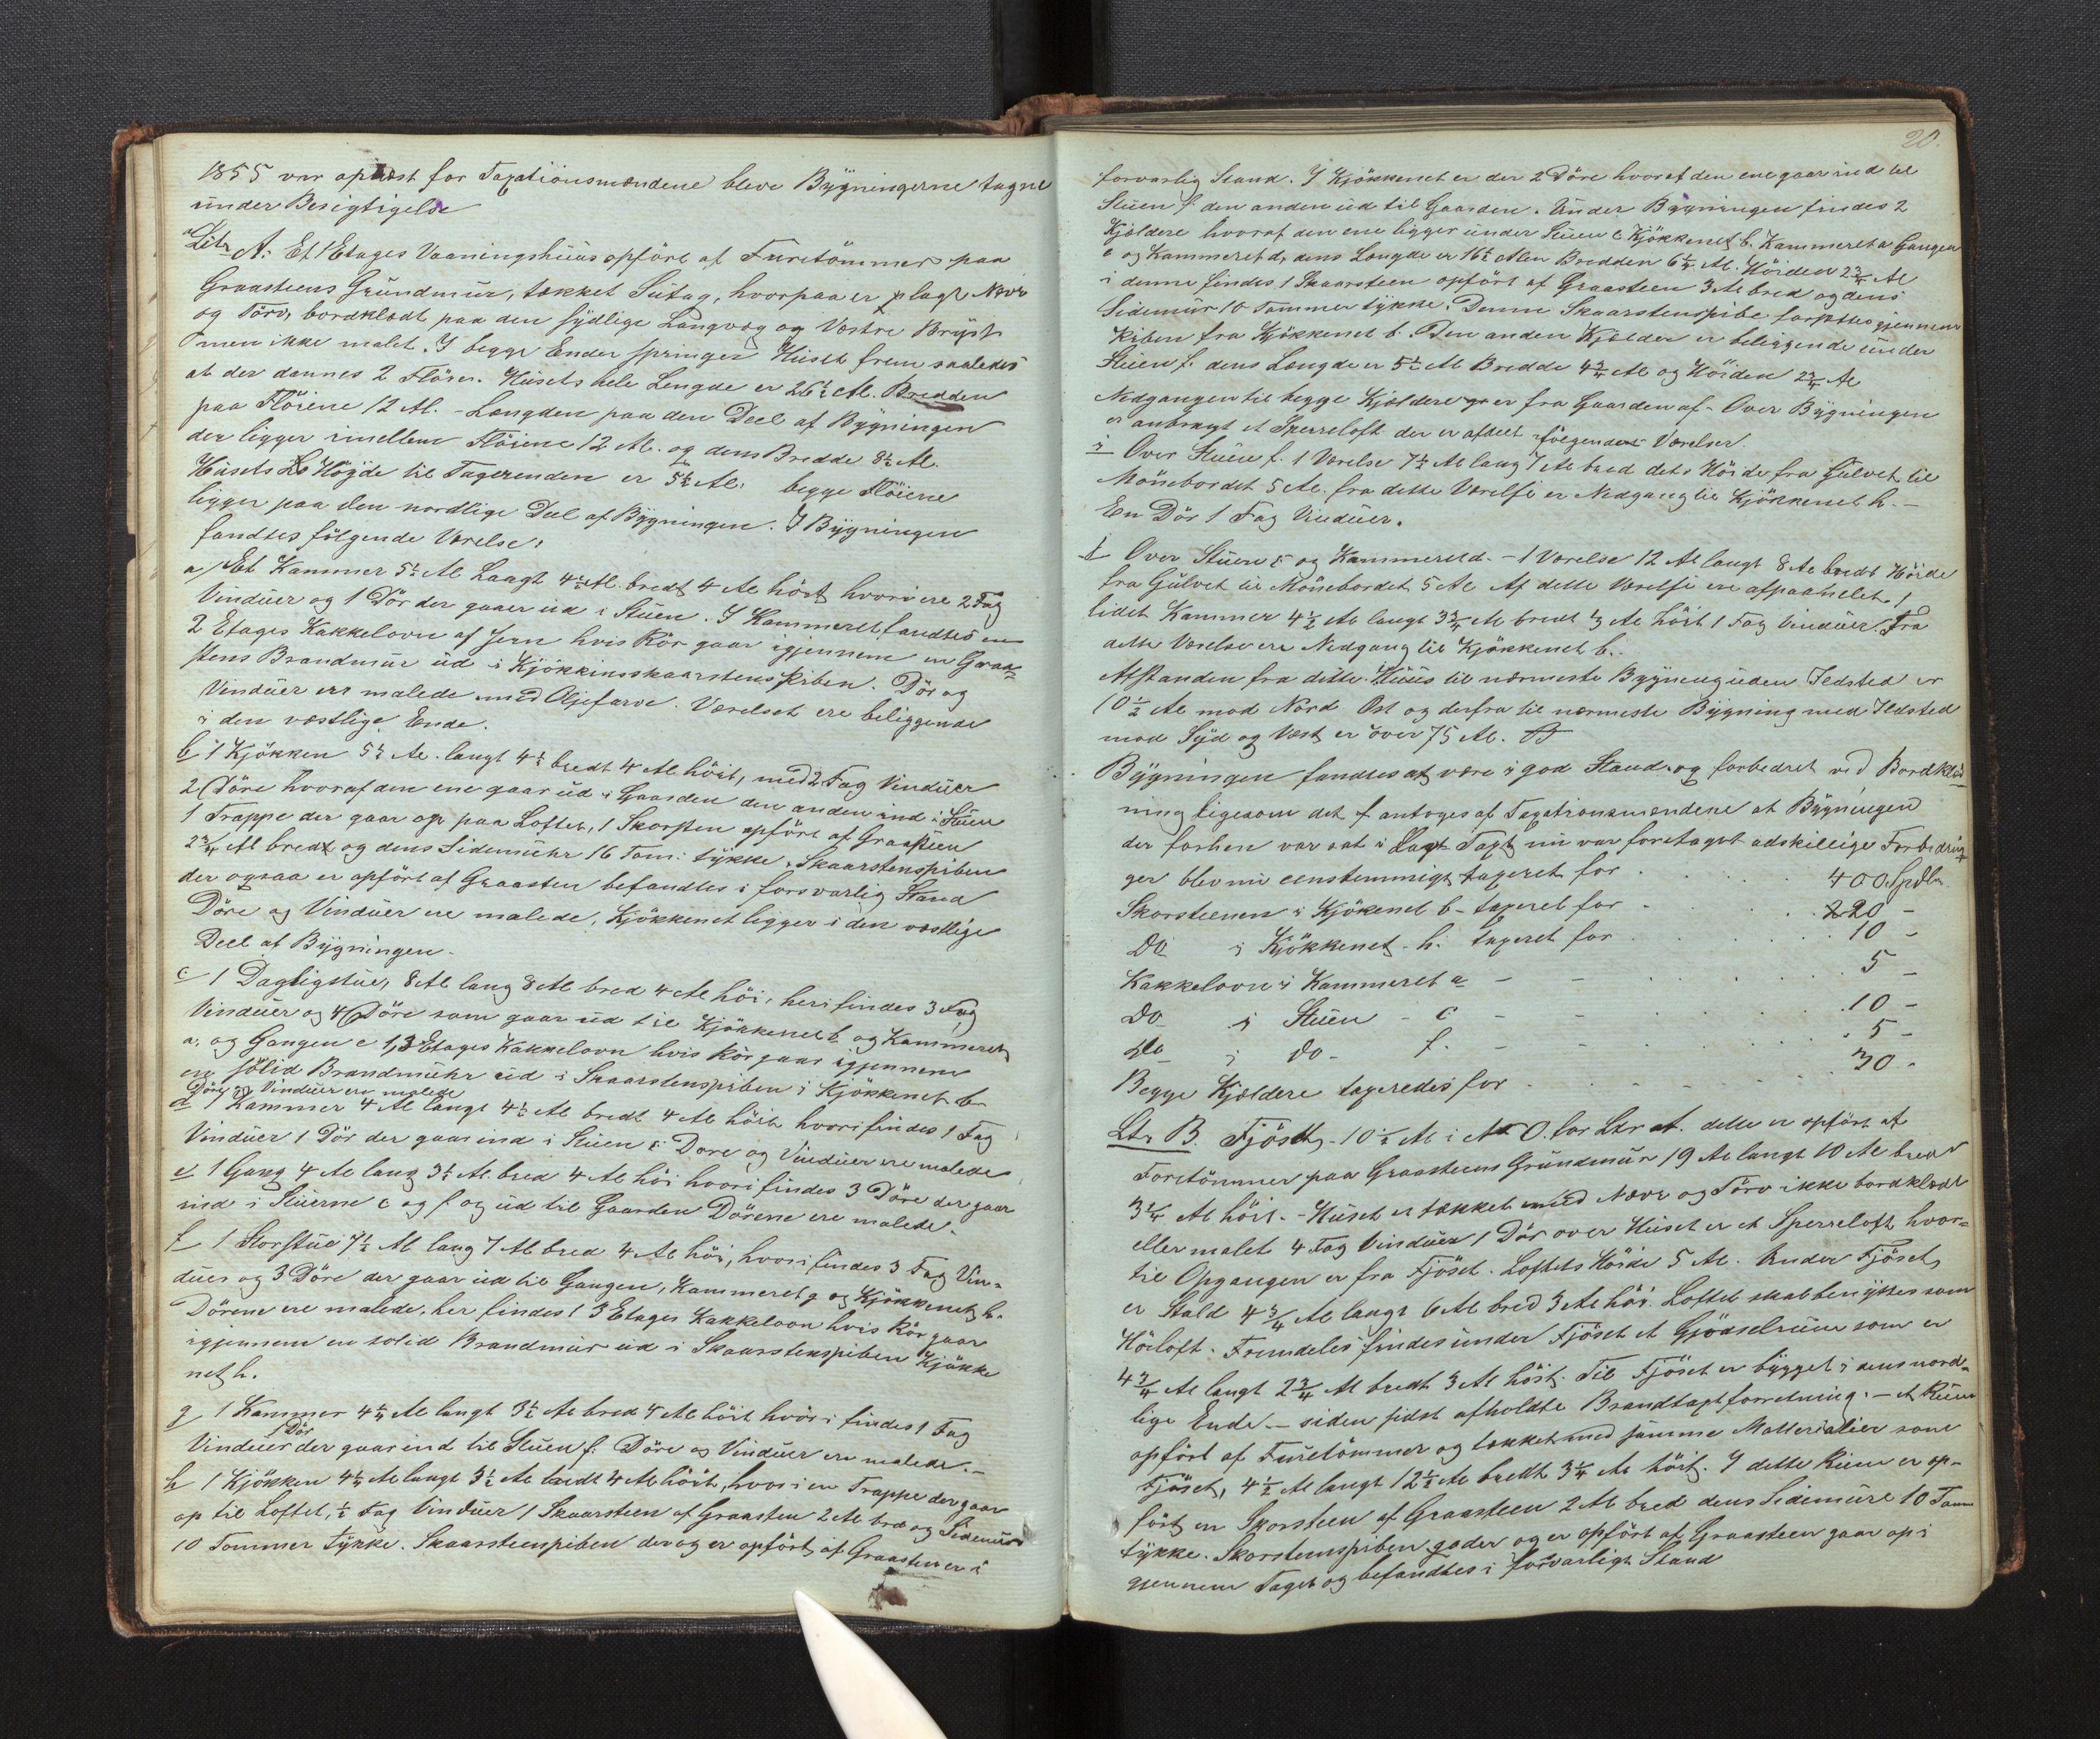 1855 var oplæst for Taxationsmændene bleve Bygningerne tagne
under Besigtigelse
Litr A. Et 1 Etages Vaaningshuus opført af Furetømmer paa
Graasteens Grundmuur, tækket Sutag, hvorpaa er plagt Næver
og Törv, bordklædt paa den sydlige Langvæg og Vestre Bryst
men ikke malet. I begge Ender springer Huset frem saaledes
at der dannes 2 Flöier. Husets hele Længde er 26½ Al. Bredden
paa Flöiene 12 Al. - Længden paa den Deel af Bygningen
der ligger imellem Flöiene 12 Al. og dens Bredde 8½ Al.
Husets Höyde til Tagrenden er 5½ Al. begge Flöiene
ligger paa den nordlige Deel af Bygningen. I Bygningen
fandtes fölgende Værelse:
a/ Et Kammer 5½ Al Langt 4½ Al. bredt 4 Al höit hvori ere 2 Fag
Vinduer og 1 Dör der gaaer ud i Stuen. I Kammeret fandtes en
2 Etages Kakkelovn af Jern hvis Rör gaar igjennem en Graa-
stens Brandmuur ud i Kjökkensskaarstenspiben. Dör og
Vinduer ere malede med Oljefarve. Værelset ere beliggende
i den vestlige Ende.
b 1 Kjökken 5½ Al. langt 4½ bredt 4 Al höit, med 2 Fag Vinduer
2 Döre hvoraf den ene gaar ud i Gaarden den anden ind i Stuen
1 Trappe der gaar op paa Loftet, 1 Skorsten opfört af Graasteen
2¾ Al bredt og dens Sidemuhr 16 Tom: tykke. Skaarstenspiben
der ogsaa er opfört af Graasten befandtes i forsvarlig Stand
Döre og Vinduer ere malede, Kjökkenet ligger i den vestlige
Deel af Bygningen.
c 1 Dagligstue, 8 Al lang 8 Al bred 4 Al höi, heri findes 3 Fag
Vinduer og 4 Döre som gaar ud til Kjökkenet b og Kammeret
a. og Gangen e 1, 3 Etages Kakkelovn hvis Rör gaar igjennem
en solid Brandmuhr ud i Skaarstenspiben i Kjökkenet b
Döre og Vinduer ere malede
d 1 Kammer 4 Al langt 4½ Al bredt 4 Al höit hvori findes 1 Fag
Vinduer 1 Dör der gaar ind i Stuen c. Döre og Vinduer ere malede
e 1 Gang 4 Al lang 3½ Al. bred 4 Al höi hvori findes 3 Döre der gaar
ind i Stuerne c og f og ud til Gaarden Dörene ere malede.
f 1 Storstue 7½ Al lang 7 Al bred 4 Al höi, hvori findes 3 Fag Vin-
duer og 3 Döre der gaar ud til Gangen, Kammeret g og Kjökkenet h.
Dörene ere malede, her findes 1 3 Etages Kakkelovn hvis Rör gaar
igjennem en solid Brandmuur ud i Skaarstenspiben Kjökke
net h.
g 1 Kammer 4¼ Al langt 3½ Al bred 4 Al höit hvori findes 1 Fag
1 Dör
Vinduer der gaar ind til Stuen f. Döre og Vinduer ere malede.-
h 1 Kjökken 4¼ Al langt 3½ Al bredt 4 Al höit, hvori en Trappe der gaar
op til Loftet, ½ Fag Vinduer 1 Skaarsteen af Graasten 2 Al bred og Sidemure
10 Tommer tykke. Skaarsteenpiben der og er opfört af Graasten er i
20.
forsvarlig Stand. I Kjökkenet er der 2 Döre hvoraf den ene gaar ind til
Stuen f. den anden ud til Gaarden. Under Bygningen findes 2
Kjeldere hvoraf den ene ligger under Stuen c Kjökkenet b. Kammeret a Gangen
e og Kammeret d, dens Længde er 16½ Alen Bredden 6½ Al. Höiden 2¾ Al
i denne findes 1 Skaarsteen opfört af Graasteen 3 Al bred og dens
Sidemur 10 Tommer tykke. Denne Skaarstenspibe gjennem
Piben fra Kjökkenet b. Den anden Kjelder er beliggende under
Stuen f. dens Længde er 5½ Al Bredde 4¾ Al og Höiden 2¾ Al
Nedgangen til begge Kjeldere er fra Gaarden af. Over Bygningen
er anbragt et Sperreloft der er afdeelt i fölgende Værelser.
i Over Stuen f. 1 Værelse 7½ Al lang 7 Al bred dets Höide fra Gulvet til
Mönebordet 5 Al. fra dette Værelse er Nedgang til Kjökkenet h.-
En Dör 1 Fag Vinduer.
k Over Stuen c og Kammeret d. - 1 Værelse 12 Al langt 8 Al bredt Höide
fra Gulvet til Mönebordet 5 Al Af dette Værelse ere afpaanelet 1
lidet Kammer 4½ Al langt 3¾ Al bredt 3 Al höit 1 Fag Vinduer. Fra
dette Værelse ere Nedgang til Kjökkenet b.
Afstanden fra dette Huus til nærmeste Bygning uden Ildsted er
10½ Al mod Nord Ost og derfra til nærmeste Bygning med Ildsted
mod Syd og Vest er over 75 Al.
Bygningen fandtes at være i god Stand og forbedret ved Bordklæd
ning ligesom det antoges af Taxationsmændene at Bygningen
der forhen var sat i Taxt nu var foretaget adskillige Forbedrin
ger blev nu eenstemmigt taxeret for . . . 400 Spdlr.
Skorsteenen i Kjökenet b - taxeret for . . . 20 -
Do i Kjökkenet - h. taxeret for . . . 10 -
Kakkelovn i Kammeret a - - . . . 5 -
Do i Stuen - c - - . . . 10 -
Do i do - f. - - . . . 5 -
Begge Kjeldere taxeredes for . . . 30 -
Ltr B. Fjöset, - 10½ Al i N O. for Ltr A. dette er opfört af
Foretömmer paa Graasteens Grundmur 19 Al langt 10 Al bred
3¼ Al höit. - Huset er tækket med Næve og Törv ikke bordklædt
eller malet 4 Fag Vinduer 1 Dör over Huset er et Sperreloft hvor-
til Opgangen er fra Fjöset. Loftets Höide 5 Al. Under Fjöset
er Stald 4¾ Al langt 6 Al bred 3 Al höi. Loftet skal benyttes som
Höeloft. Fremdeles findes under Fjöset et Gjödselrum som er
4¾ Al langt 2¾ Al bredt 3 Al höit. Til Fjöset er bygget i dens nord-
lige Ende - siden sidst afholdte Brandtaxtforretning. - et Ruum
opfört af Furetömmer og tækket med samme Matterialier som
Fjöset, 4½ Al langt 12½ Al bredt 3¼ Al höit. I dette Ruum er op-
fört en Skorsteen af Graasteen 2 Al bred dens Sidemure 10 Tom
tykke. Skorsteenspiben og er opfört af Graasteen gaar op i
gjennem Taget og befandtes i forsvarligt Stand